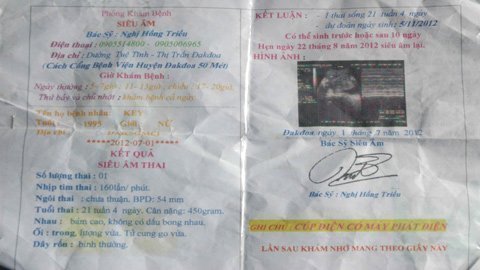 Phòng Khám Bệnh
SIÊU ÂM
Bác Sỹ : Nghị Hồng Triều
Điện thoại : 0905514800 - 0905006965
Đường Thế Tình - Thị Trấn Đakdoa
(Cách Cổng Bệnh Viện Huyện Đakdoa 50 Mét)
Giờ Khám Bệnh :
Ngày thường : 5-7giờ, 11- 13giờ, chiều : 17- 20giờ.
Thứ bảy và chủ nhật : khám bệnh cả ngày.
Tên họ bệnh nhân : KEY
Tuổi : 1995 Giới NỮ
Địa chỉ
*****2012-07-01*****
KẾT QUẢ
SIÊU ÂM THAI
Số lượng thai : 01
Nhịp tim thai : 160lần/ phút.
Ngôi thai : chưa thuận. BPD: 54 mm
Tuổi thai : 21 tuần 4 ngày. Cân nặng: 450gram.
Nhau : bám cao, không có dấu bong nhau.
Ối : trong, lượng vừa. Tử cung go vừa.
Dây rốn : bình thường.
KẾT LUẬN : 1 thai sống 21 tuần 4 ngày
dự đoán ngày sinh: 5/11/2012
Có thể sinh trước hoặc sau 10 ngày
Hẹn ngày 22 tháng 8 năm 2012 siêu âm lại.
HÌNH ẢNH :
Đakdoa ngày 1 tháng 7 năm 2012
Bác Sỹ Siêu Âm
Bác Sỹ : Nghị Hồng Triều
GHI CHÚ : CÚP ĐIỆN CÓ MÁY PHÁT ĐIỆN
LẦN SAU KHÁM NHỚ MANG THEO GIẤY NÀY